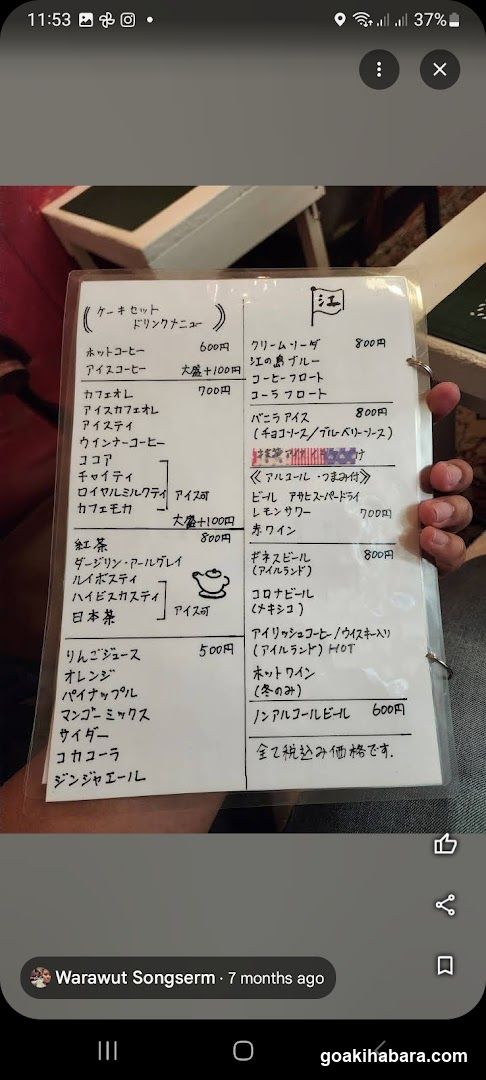 11:53
37%
ケーキセット
ドリンクメニュー
ホットコーヒー 600円
アイスコーヒー 大盛+100円
カフェオレ 700円
アイスカフェオレ
アイスティ
ウインナーコーヒー
ココア
チャイティ
ロイヤルミルクティ アイス可
カフェモカ
大盛+100円
紅茶 800円
ダージリン・アールグレイ
ルイボスティ
ハイビスカスティ
日本茶 アイス可
りんごジュース 500円
オレンジ
パイナップル
マンゴーミックス
サイダー
コカコーラ
ジンジャエール
江
クリームソーダ 800円
江の島ブルー
コーヒーフロート
コーラフロート
バニラアイス 800円
(チョコソース/ブルーベリーソース)
《アルコール・つまみ付》
ビール アサヒスーパードライ
レモンサワー 700円
赤ワイン
ギネスビール 800円
(アイルランド)
コロナビール
(メキシコ)
アイリッシュコーヒー/ウイスキー入り
(アイルランド) HOT
ホットワイン
(冬のみ)
ノンアルコールビール 600円
全て税込み価格です.
Warawut Songserm · 7 months ago
goakihabara.com